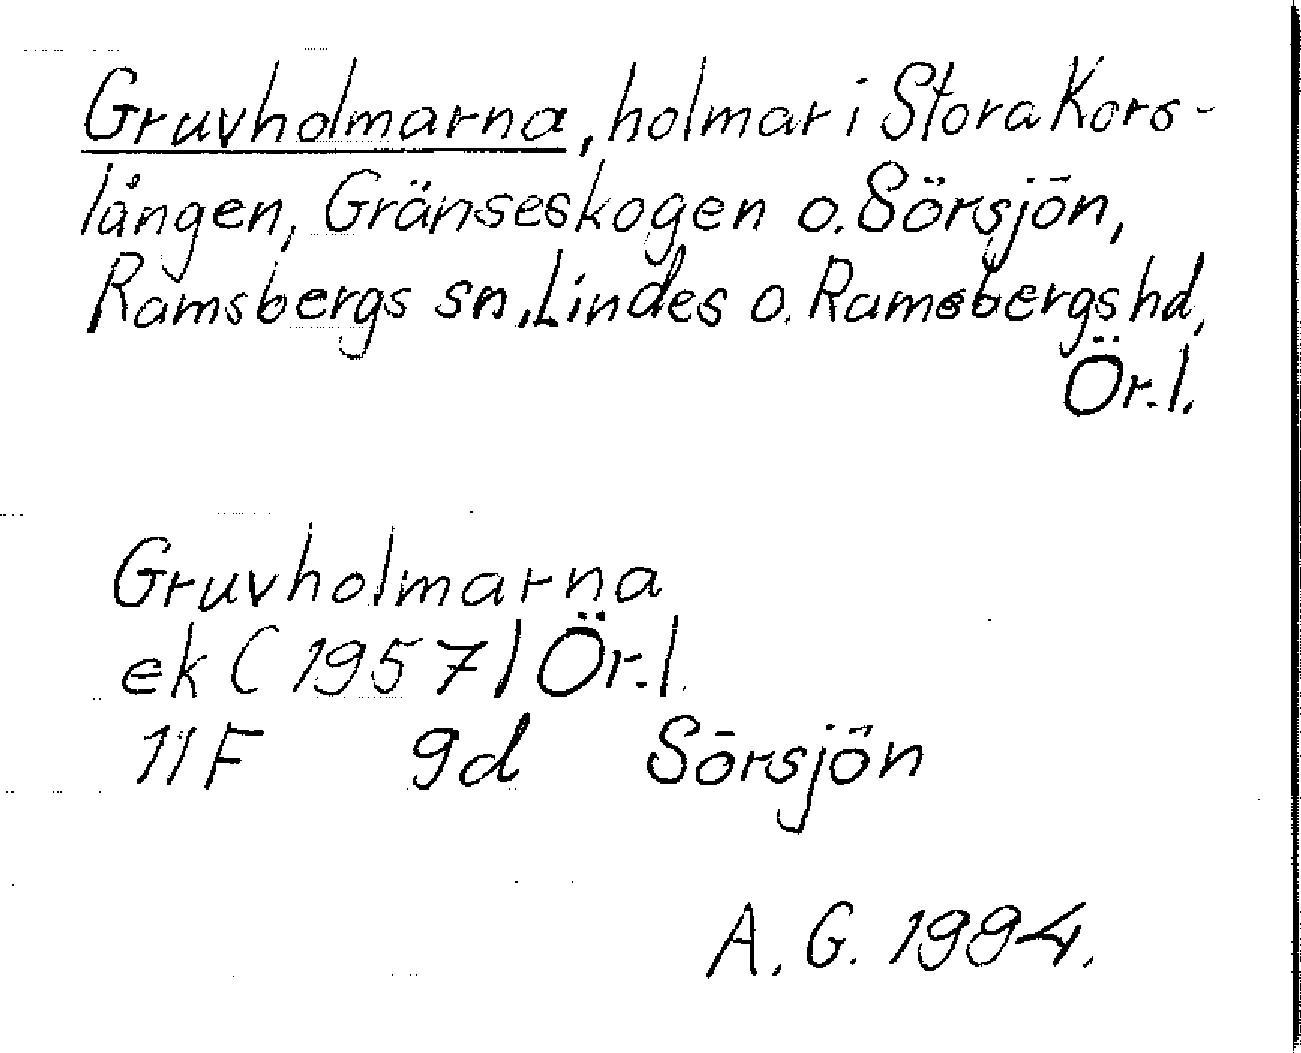 Gruvholmarna, holmar i Stora Kors-
lången, Gränseskogen o. Sörsjön,
Ramsbergs sn, Lindes o. Ramsbergs hd,
Ör. l.
Gruvholmarna
ek (1957) Ör. l.
11F 9d Sörsjön
A. G. 1994.